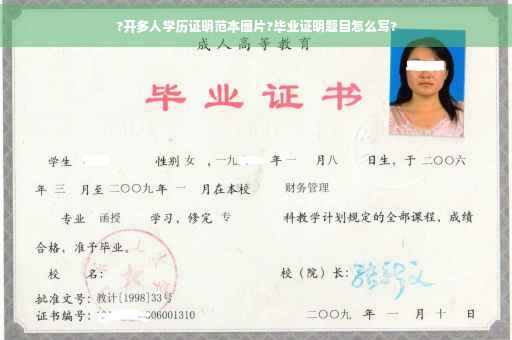 ?开多人学历证明范本图片?毕业证明题目怎么写?
成人高等教育
毕业证书
学生 性别 女 ,一九 年 一 月八 日生，于 二〇〇六
年 三 月至 二〇〇九 年 一 月在本校 财务管理
专业 函授 学习，修完 专 科教学计划规定的全部课程，成绩
合格，准予毕业。
校 名： 校（院）长：
批准文号：教计[1998]33号
证书编号： 06001310 二〇〇九 年 一 月 十 日